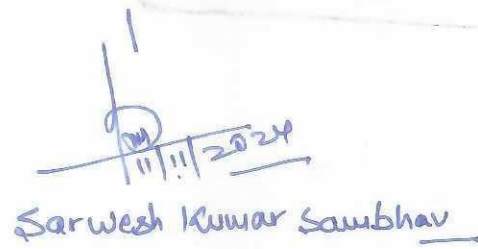 11/11/2024
Sarwesh Kumar Sambhav